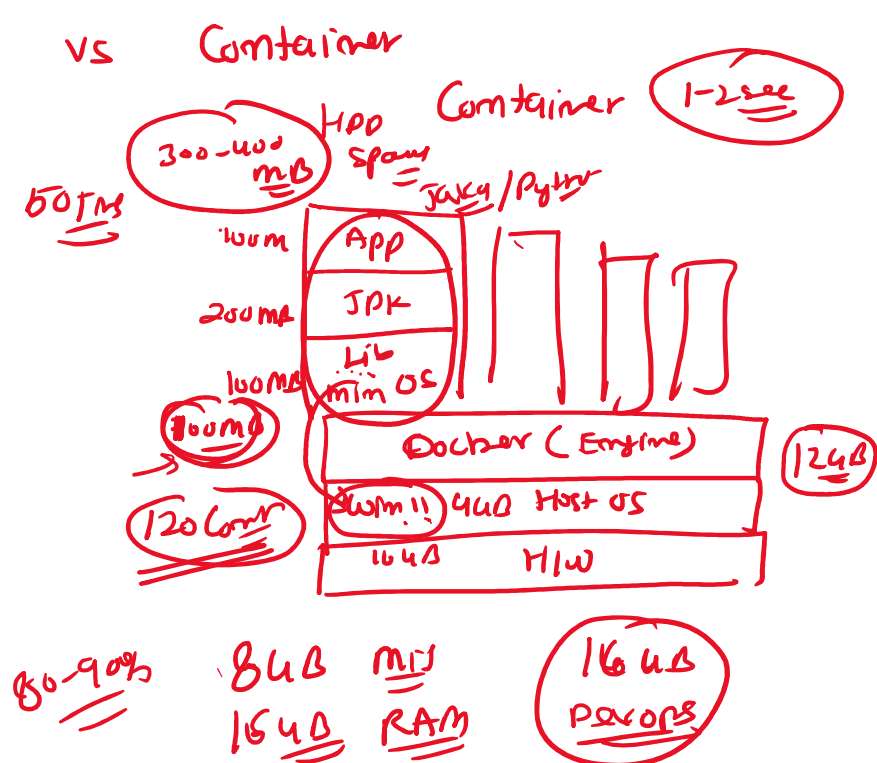 vs Container
Container 1-2 sec
300-400 MB
HDD
Space
50 Ims
Java / Python
100m App
200MB JDK
100MB Lib
min OS
100MB
Docker (Engine)
12GB
4GB Host OS
120 Cont
16GB H/W
80-90%
8GB Min
16GB RAM
16GB
Devops